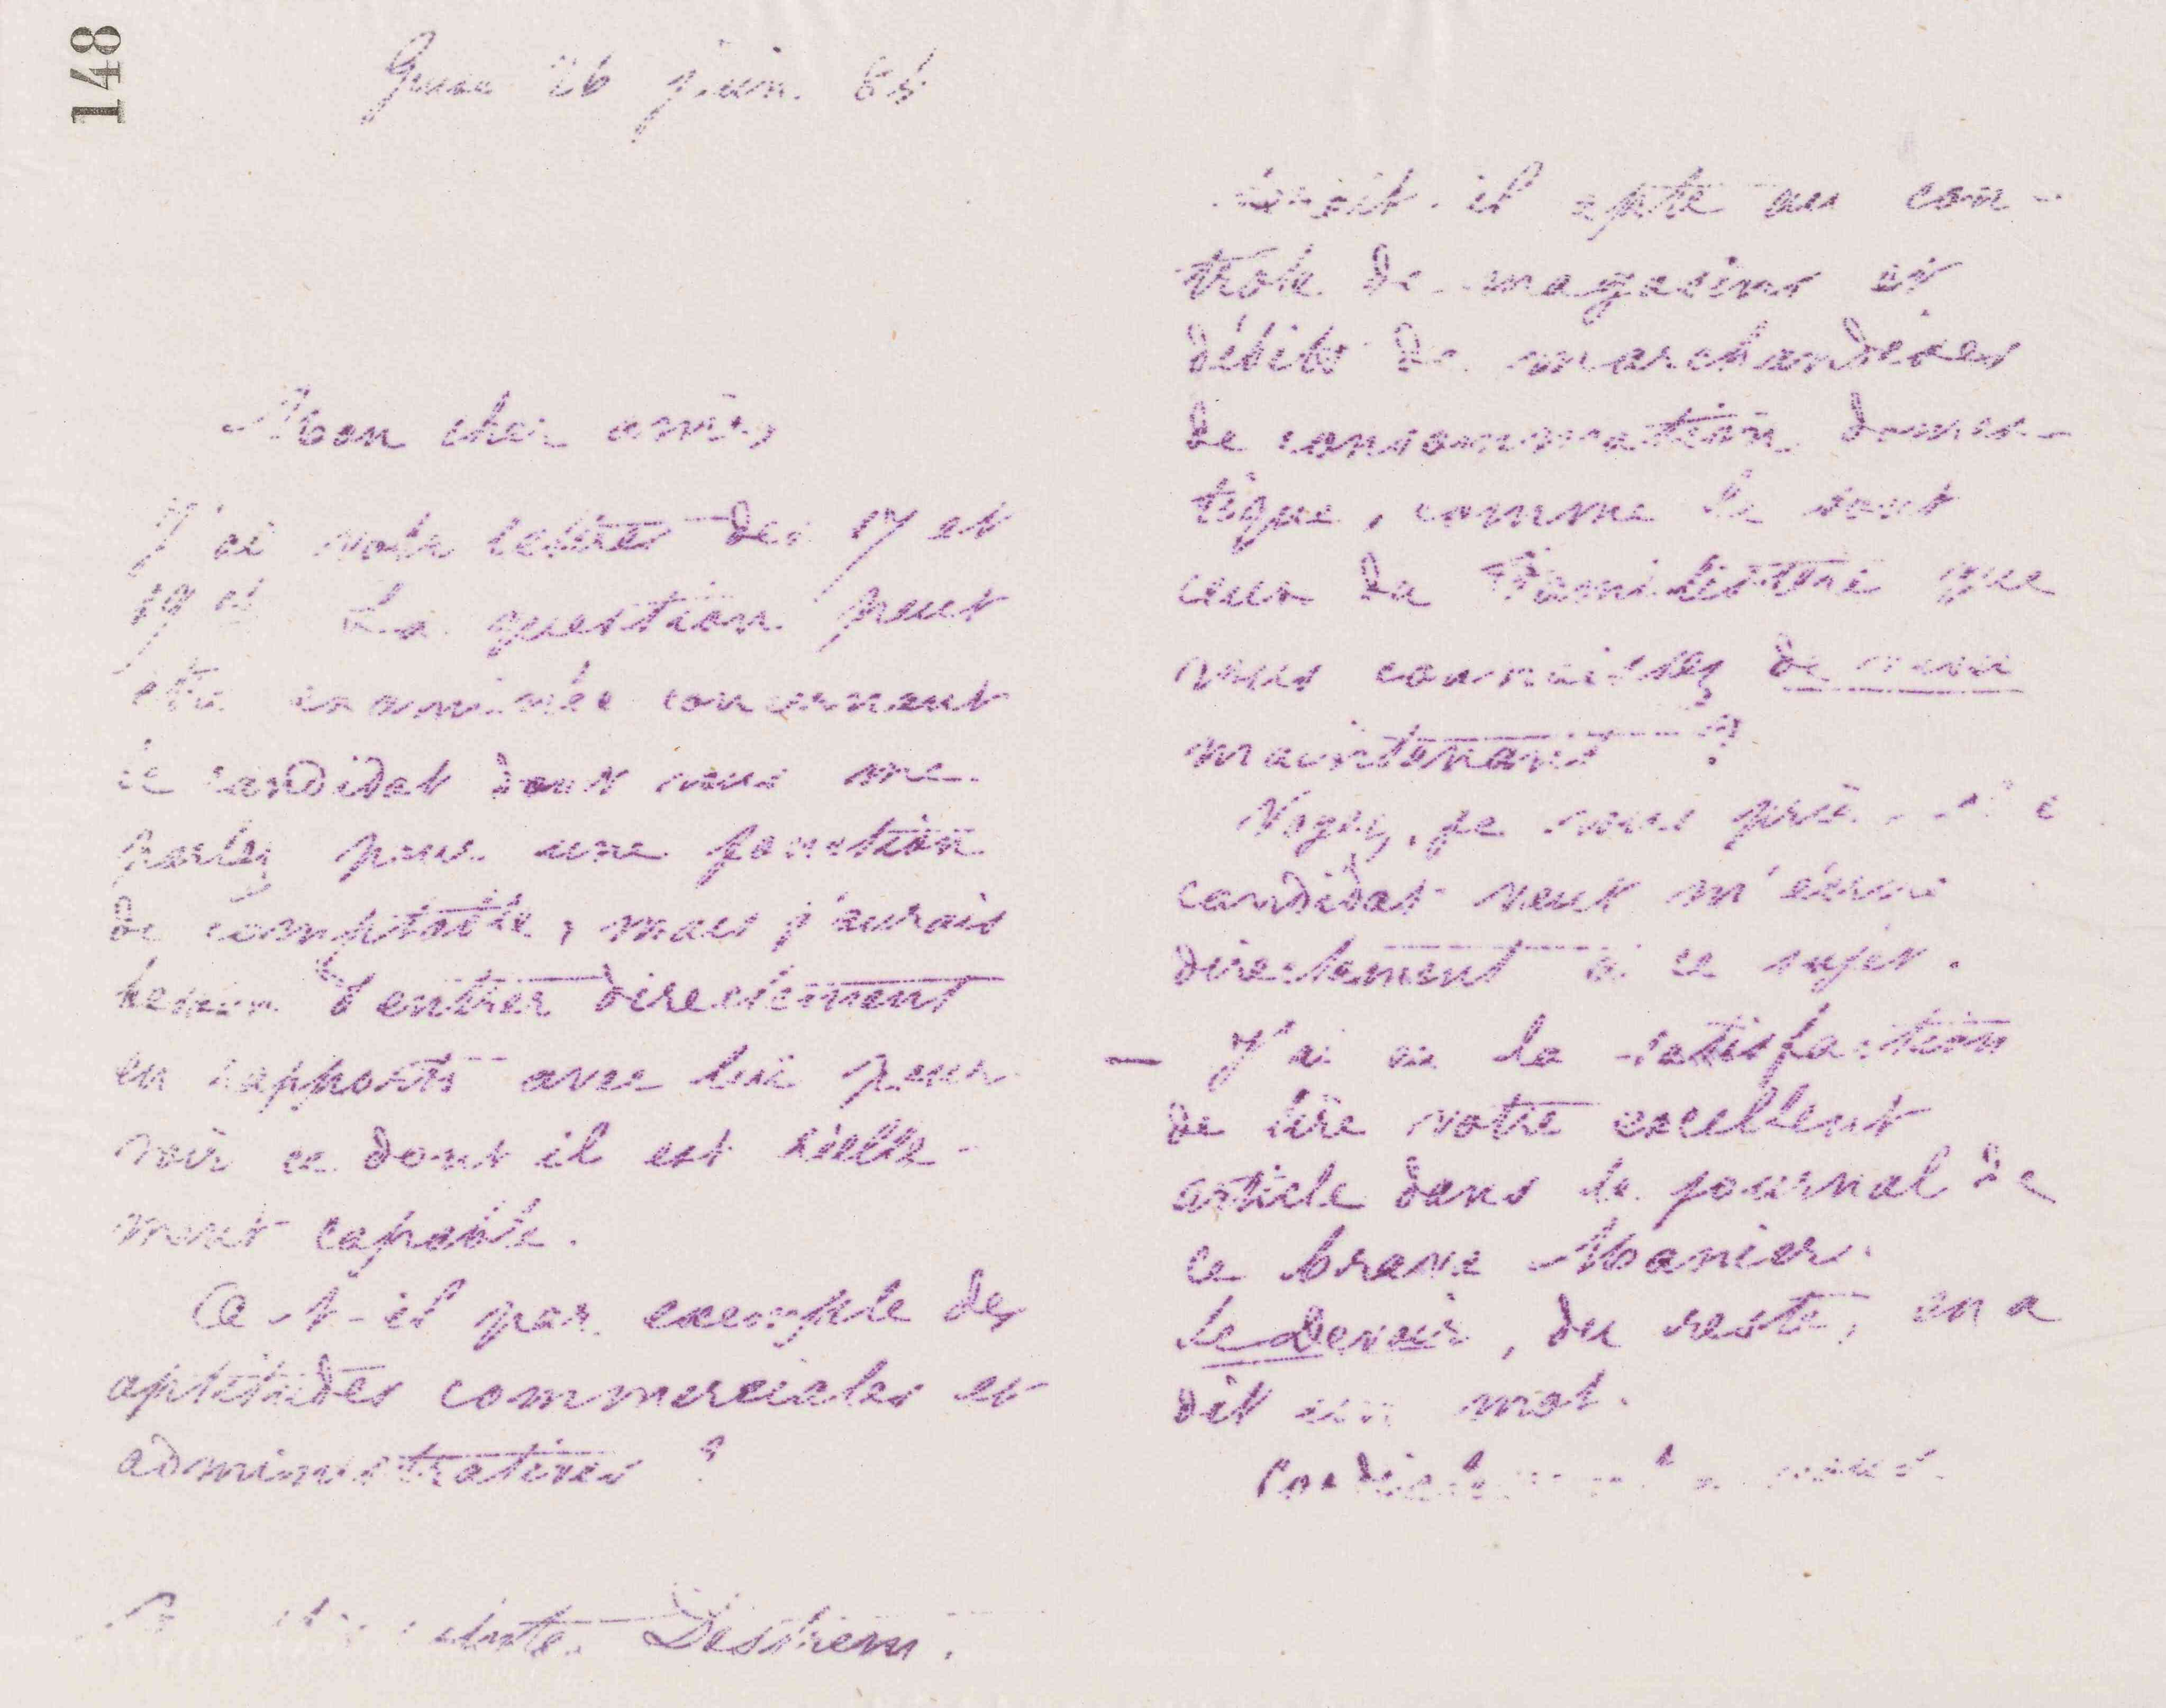 148
Guise 26 juin 85
Mon cher ami,
J'ai votre lettres des 17 et
19 ct La question peut
être examinée concernant
le candidat dont vous me
parlez pour une fonction
de comptable, mais j'aurais
besoin d'entrer directement
en rapports avec lui pour
voir ce dont il est réelle-
ment capable.
A-t-il par exemple des
aptitudes commerciales et
administratives ?
Destrem.
serait-il apte au con-
trôle de magasins et
débits de marchandises
de consommation domes-
tique, comme le sont
ceux du Familistère que
vous connaissez de visu
maintenant ?
Voyez, je vous prie
candidat veut m'écrire
directement à ce sujet.
— J'ai eu la satisfaction
de lire votre excellent
article dans le journal de
ce brave Manier.
Le Devoir, du reste, en a
dit un mot.
Cordialement à vous